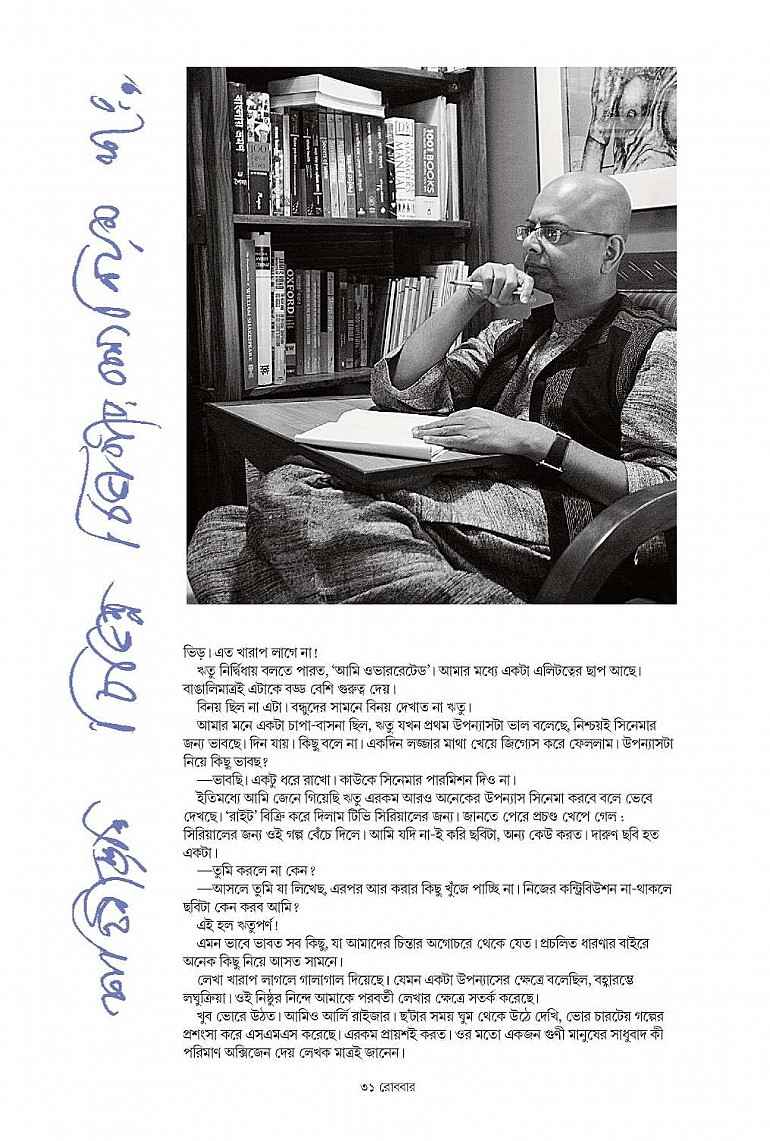 1001 BOOKS
DK
MANAGER'S
MANUAL
OXFORD
WILLIAM SHAKESPEARE
ভিড়। এত খারাপ লাগে না!
ঋতু নির্দ্বিধায় বলতে পারত, ‘আমি ওভাররেটেড’। আমার মধ্যে একটা এলিটত্বের ছাপ আছে।
বাঙালিমাত্রই এটাকে বড্ড বেশি গুরুত্ব দেয়।
বিনয় ছিল না এটা। বন্ধুদের সামনে বিনয় দেখাত না ঋতু।
আমার মনে একটা চাপা-বাসনা ছিল, ঋতু যখন প্রথম উপন্যাসটা ভাল বলেছে, নিশ্চয়ই সিনেমার
জন্য ভাবছে। দিন যায়। কিছু বলে না। একদিন লজ্জার মাথা খেয়ে জিগ্যেস করে ফেললাম। উপন্যাসটা
নিয়ে কিছু ভাবছ?
—ভাবছি। একটু ধরে রাখো। কাউকে সিনেমার পারমিশন দিও না।
ইতিমধ্যে আমি জেনে গিয়েছি ঋতু এরকম আরও অনেকের উপন্যাস সিনেমা করবে বলে ভেবে
দেখছে। ‘রাইট’ বিক্রি করে দিলাম টিভি সিরিয়ালের জন্য। জানতে পেরে প্রচণ্ড খেপে গেল :
সিরিয়ালের জন্য ওই গল্প বেঁচে দিলে। আমি যদি না-ই করি ছবিটা, অন্য কেউ করত। দারুণ ছবি হত
একটা।
—তুমি করলে না কেন?
—আসলে তুমি যা লিখেছ, এরপর আর করার কিছু খুঁজে পাচ্ছি না। নিজের কন্ট্রিবিউশন না-থাকলে
ছবিটা কেন করব আমি?
এই হল ঋতুপর্ণ!
এমন ভাবে ভাবত সব কিছু, যা আমাদের চিন্তার অগোচরে থেকে যেত। প্রচলিত ধারণার বাইরে
অনেক কিছু নিয়ে আসত সামনে।
লেখা খারাপ লাগলে গালাগাল দিয়েছে। যেমন একটা উপন্যাসের ক্ষেত্রে বলেছিল, বহ্বারম্ভে
লঘুক্রিয়া। ওই নিষ্ঠুর নিন্দে আমাকে পরবর্তী লেখার ক্ষেত্রে সতর্ক করেছে।
খুব ভোরে উঠত। আমিও আর্লি রাইজার। ছ’টার সময় ঘুম থেকে উঠে দেখি, ভোর চারটের গল্পের
প্রশংসা করে এসএমএস করেছে। এরকম প্রায়শই করত। ওর মতো একজন গুণী মানুষের সাধুবাদ কী
পরিমাণ অক্সিজেন দেয় লেখক মাত্রই জানেন।
৩১ রোববার